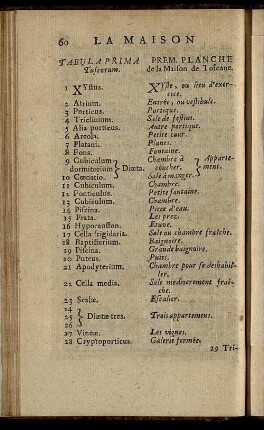 60 LA MAISON
TABULA PRIMA PREM. PLANCHE
Tuscorum. de la Maison de Toscane.
1 XYstus. XYste, ou lieu d'exer-
cice.
2 Atrium. Entrée, ou vestibule.
3 Porticus. Portique.
4 Triclinium. Sale de festins.
5 Alia porticus. Autre portique.
6 Areola. Petite cour.
7 Platani. Planes.
8 Fons. Fontaine.
9 Cubiculum Chambre à Apparte-
dormitorium } Diæta. coucher. } ment.
10 Cœnatio. Sale à manger.
11 Cubiculum. Chambre.
12 Fonticulus. Petite fontaine.
13 Cubiculum. Chambre.
14 Piscina. Piece d'eau.
15 Prata. Les prez.
16 Hypocauston. Etuve.
17 Cella frigidaria. Sale ou chambre fraîche.
18 Baptisterium. Baignoire.
19 Piscina. Grande baignoire.
20 Puteus. Puits.
21 Apodyterium. Chambre pour se deshabil-
ler.
22 Cella media. Sale mediocrement fraî-
che.
23 Scalæ. Escalier.
24
25 } Diætæ tres. Trois appartemens.
26
27 Vineæ. Les vignes.
28 Cryptoporticus. Galerie fermée.
29 Tri-